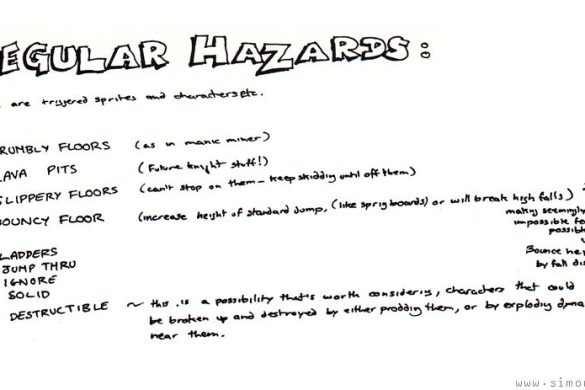 EGULAR HAZARDS:
are triggered sprites and characters etc.
RUMBLY FLOORS (as in manic miner)
AVA PITS (Future knight stuff!)
SLIPPERY FLOORS (can't stop on them - keep skidding until off them)
OUNCY FLOOR (increase height of standard jump, (like springboards) or will break high falls)
making seemingly
impossible fa
possib
Bounce hei
by fall di
LADDERS
JUMP THRU
IGNORE
SOLID
DESTRUCTIBLE ~ this is a possibility that's worth considering, characters that could
be broken up and destroyed by either prodding them, or by exploding dyna
near them.
www.simo